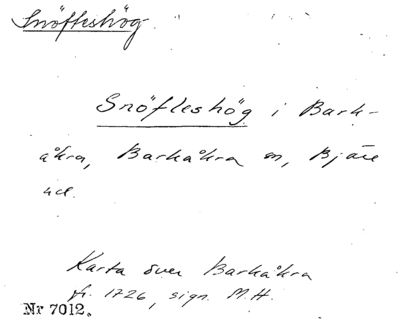 Snöfleshög
Snöfleshög i Bark-
åkra, Barkåkra sn, Bjäre
hd.
Karta över Barkåkra
fr. 1726, sign. M.H.
Nr 7012.